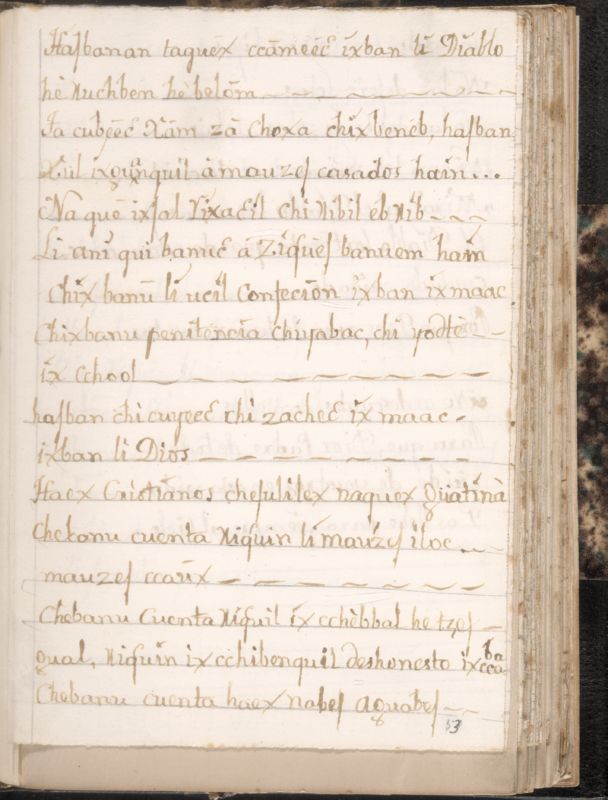 Hasban an taquēx ccāmeéc ixban li Diablo
hè Nuchben hè belōm
Ia cubeéc Xām zā Choxa chixbeneb, hasban
Xul ixquinquil à mauzes casados hain...
Na quē ixsal rixaēil chi Nibil eb Nib
Li ani qui banuc à Ziques banuem hain
Chix banū li ucil Confeciōn ixban ix maac
Chixbanu penitencia chiyabac, chi yodtè
ix cchool
hasban chi cuyeec chi zacheē ix maac
ixban li Dios
Haex Cristianos chesulilex naquex Quatinà
Chebanu cuenta Niquin li mauzes iloc
mauzes ccaūx
Chebanu Cuenta Niquil ix cchēbbal he tzes
qual, Niquin ix cchibenquil deshonesto ixccaba
Chebanu cuenta haex nabes aquabes
53